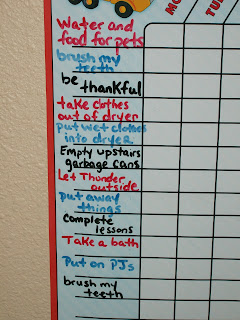 MO
TU
Water and
food for pets
brush my
teeth
be
thankful
take clothes
out of dryer
put wet clothes
into dryer
Empty upstairs
garbage cans
Let Thunder
outside
put away
things
Complete
lessons
Take a bath
Put on PJs
brush my
teeth